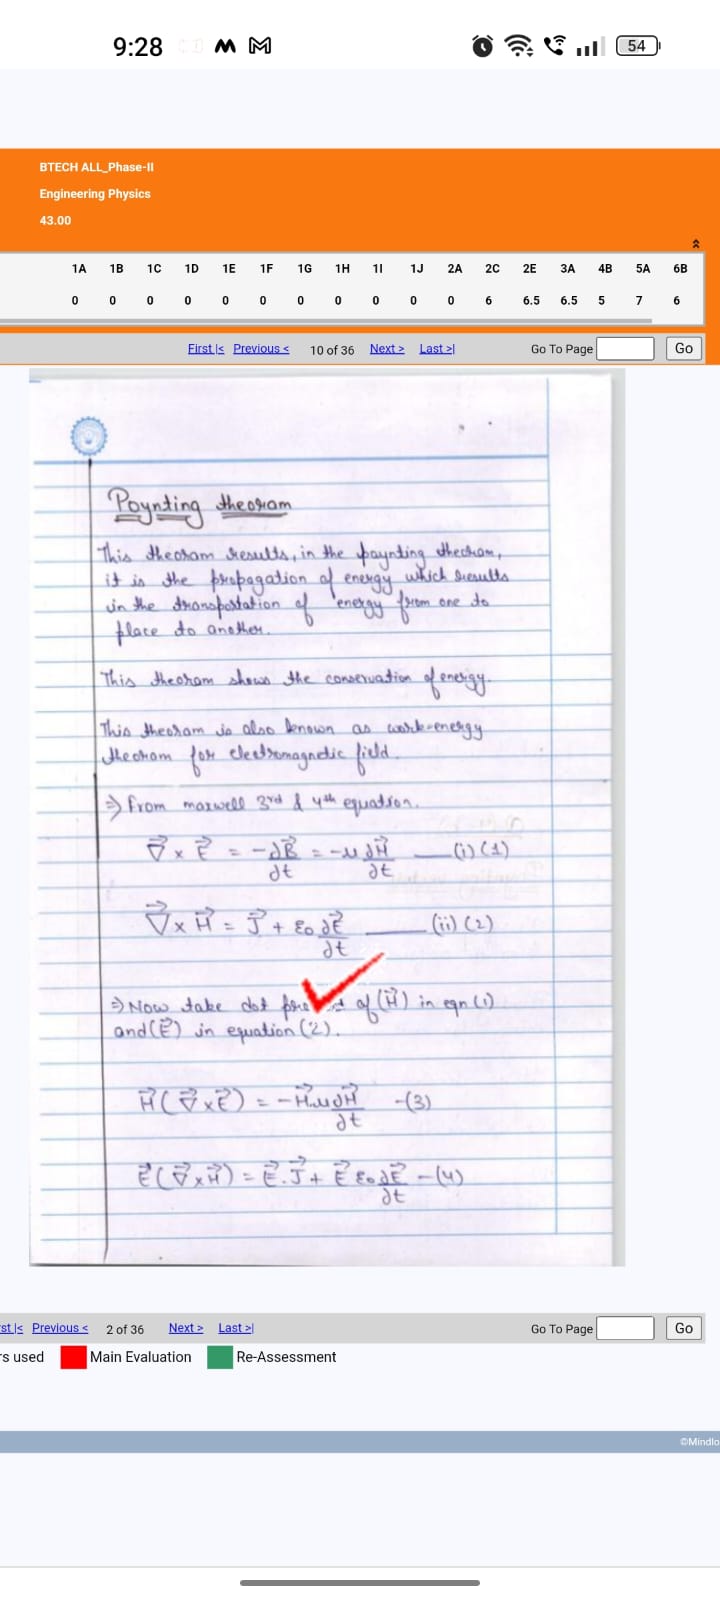 9:28
54
BTECH ALL_Phase-II
Engineering Physics
43.00
1A 1B 1C 1D 1E 1F 1G 1H 1I 1J 2A 2C 2E 3A 4B 5A 6B
0 0 0 0 0 0 0 0 0 0 0 6 6.5 6.5 5 7 6
First |< Previous < 10 of 36 Next > Last >| Go To Page Go
Poynting theoram
This theoram results, in the poynting theoram,
it is the propagation of energy which results
in the transportation of energy from one to
place to another.
This theoram shows the conservation of energy.
This theoram is also known as work-energy
theoram for electromagnetic field.
⇒ from maxwell 3rd & 4th equation.
∇⃗ × E⃗ = -∂B⃗/∂t = -μ ∂H⃗/∂t — (i) (1)
∇⃗ × H⃗ = J⃗ + ε₀ ∂E⃗/∂t — (ii) (2)
⇒ Now take dot of (H⃗) in eqn (1)
and (E⃗) in equation (2).
H⃗(∇⃗ × E⃗) = -H⃗.μ ∂H⃗/∂t -(3)
E⃗(∇⃗ × H⃗) = E⃗.J⃗ + E⃗ ε₀ ∂E⃗/∂t -(4)
rst |< Previous < 2 of 36 Next > Last >| Go To Page Go
rs used Main Evaluation Re-Assessment
©Mindlo